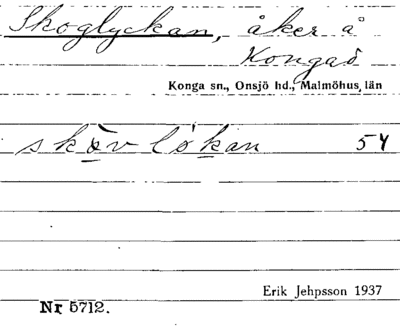 Skoglyckan, åker å
Kongaö
Konga sn., Onsjö hd., Malmöhus län
skòvlökan 54
Erik Jehpsson 1937
Nr 5712.